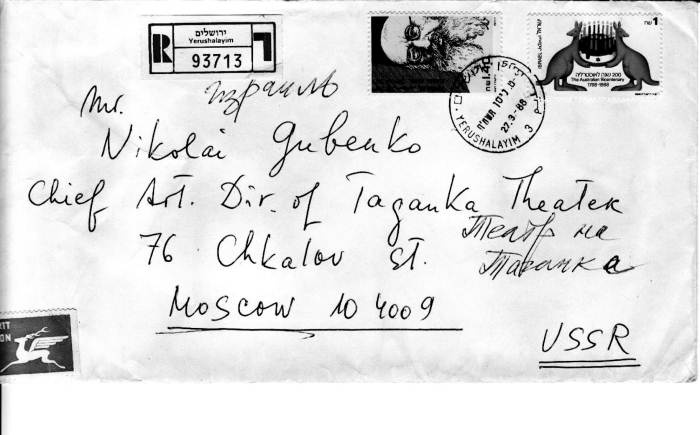 ירושלים
Yerushalayim
R 93713 ר
1
200 שנה לאוסטרליה
The Australian Bicentenary
1788-1988
YERUSHALAYIM 3
27.3.-88
израиль
Mr.
Nikolai Gubenko
Chief Art. Dir. of Taganka Theater
Театр на
Таганка
76 Chkalov st.
Moscow 104009
USSR